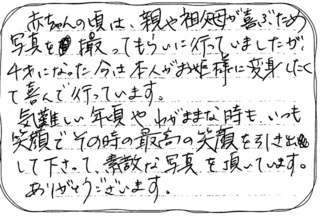 赤ちゃんの頃は、親や祖父母が喜ぶため
写真を撮ってもらいに行っていましたが、
4才になった今は本人がお姫様に変身したく
て喜んで行っています。
気難しい年頃やわがままな時も、いつも
笑顔でその時の最高の笑顔を引き出
して下さって、素敵な写真を頂いています。
ありがとうございます。